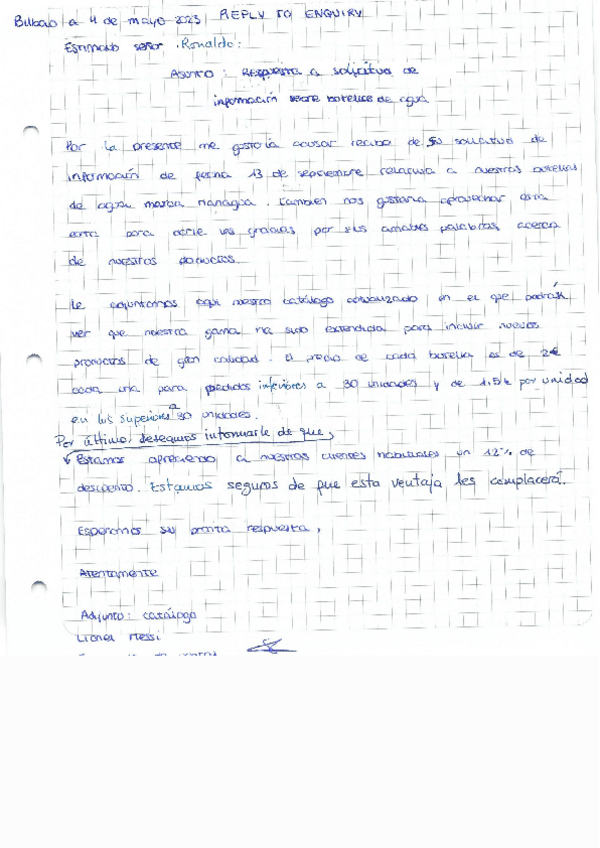 Bilbao a 4 de mayo 2023 REPLY TO ENQUIRY
Estimado señor Ronaldo:
Asunto: Respuesta a solicitud de
información sobre botellas de agua
Por la presente me gustaría acusar recibo de su solicitud de
información de fecha 13 de septiembre relativa a nuestras botellas
de agua marca managua. También nos gustaría aprovechar esta
carta para darle las gracias por sus amables palabras acerca
de nuestros productos.
Le adjuntamos aquí nuestro catálogo actualizado en el que podrá
ver que nuestra gama ha sido extendida para incluir nuevos
productos de gran calidad. El precio de cada botella es de 2€
cada una para pedidos inferiores a 30 unidades y de 1,5€ por unidad
en los superiores a 30 unidades.
Por último, deseamos informarle de que,
Estamos ofreciendo a nuestros clientes habituales un 12% de
descuento. Estamos seguros de que esta ventaja les complacerá.
Esperamos su pronta respuesta,
Atentamente
Adjunto: catálogo
Lionel Messi